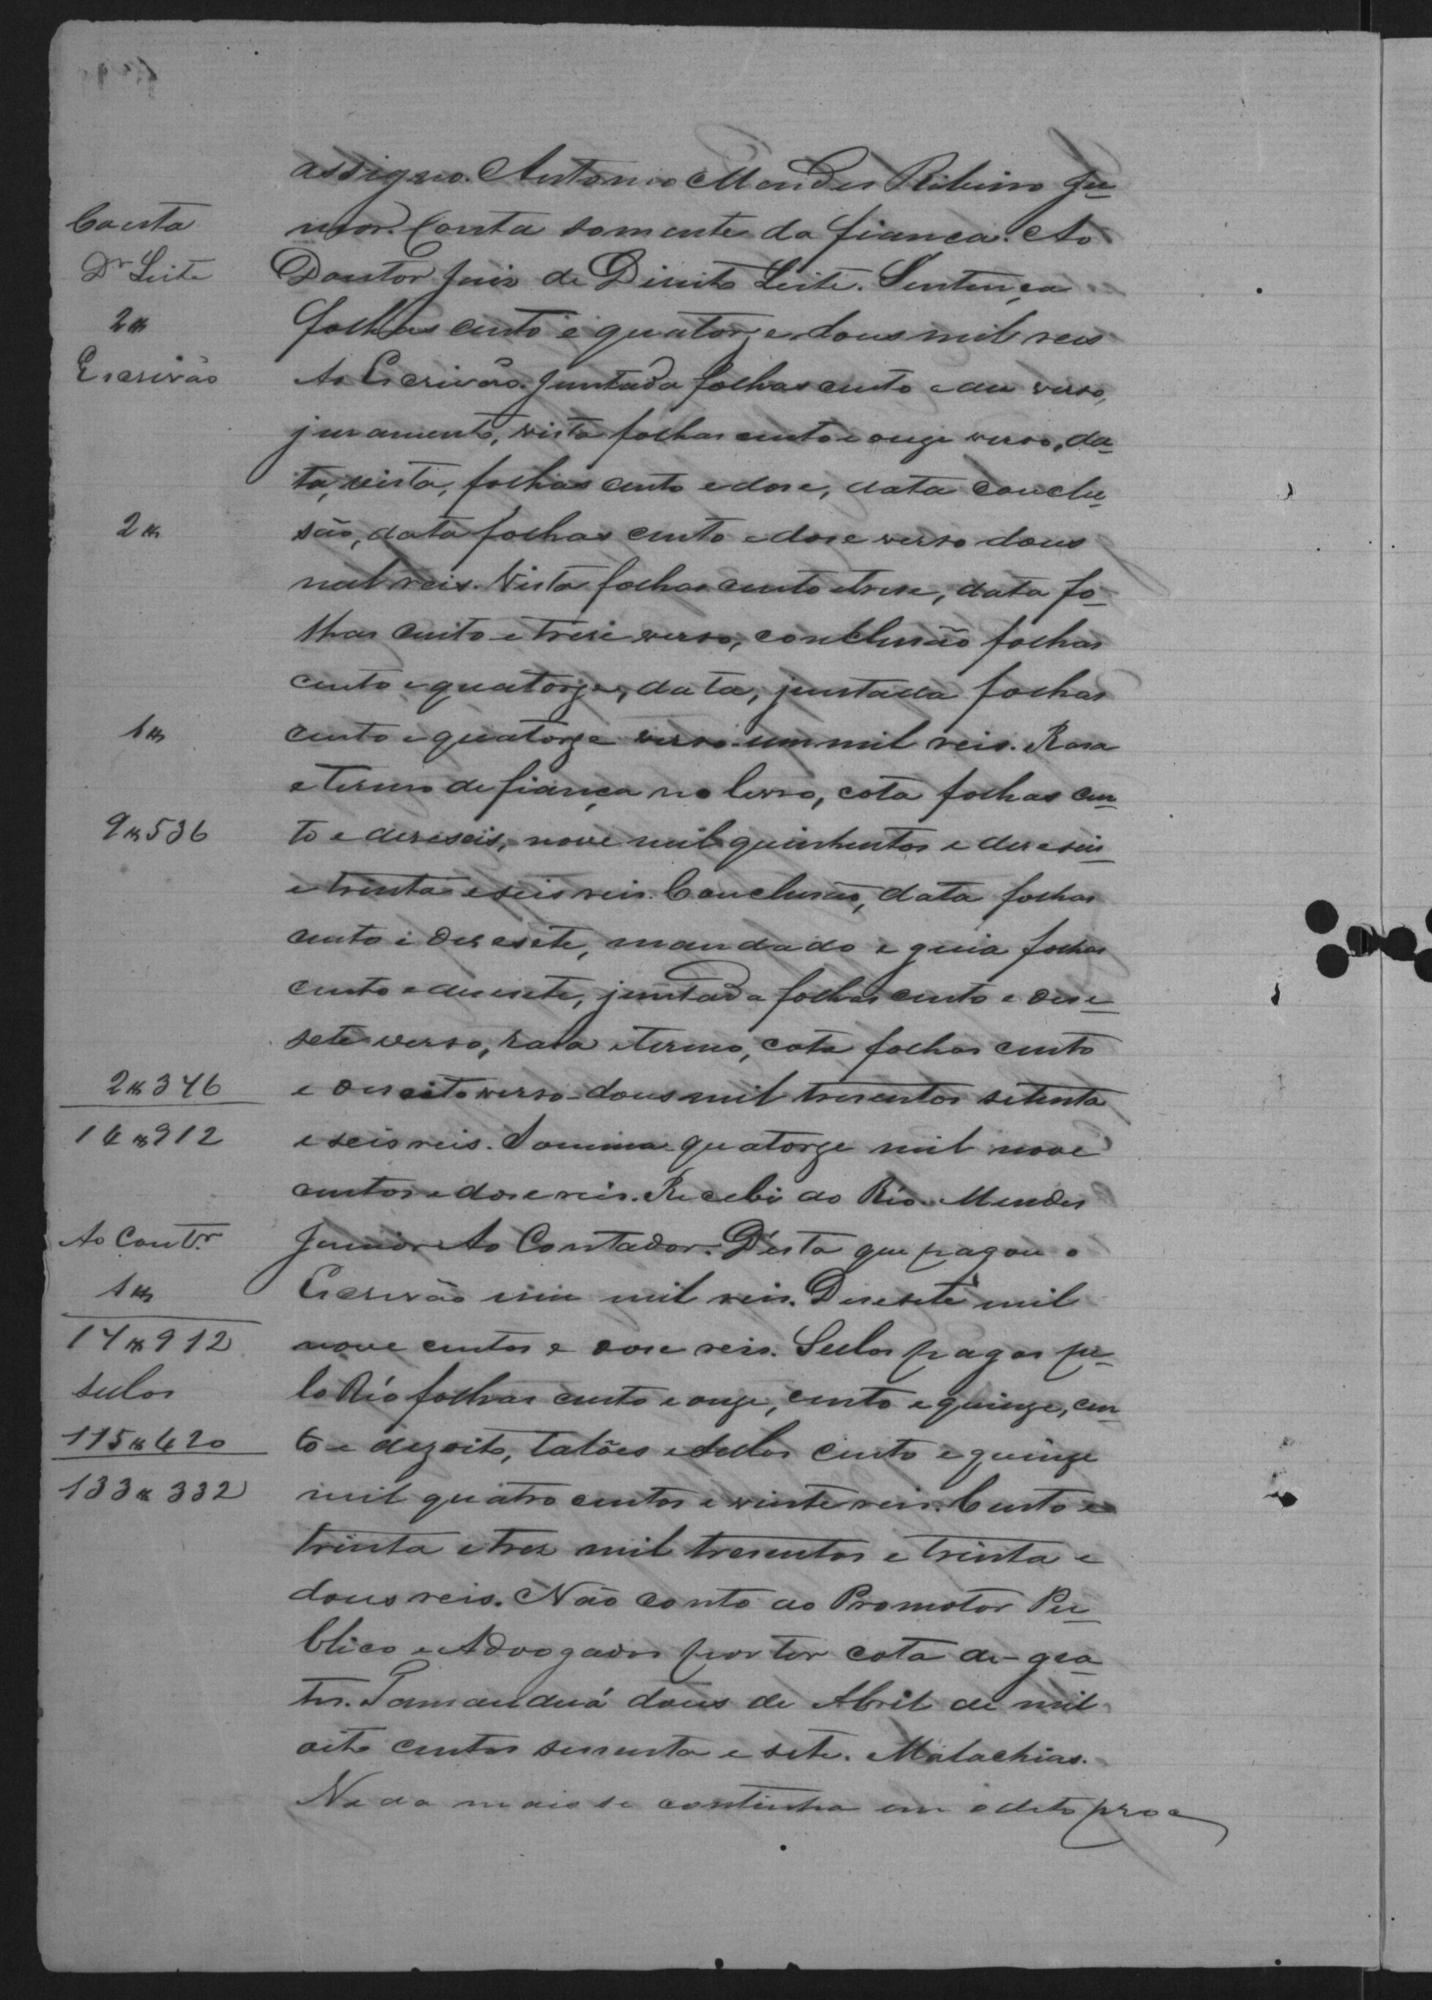 assigno. Antonio Mendes Ribeiro Ju-
Conta
nior. Conta somente da fiança. Ao
Dr Leite
Doutor Juis de Direito Leite. Sentença
2$
folhas cento e quatorze dous mil reis
Escrivão
Ao Escrivão. Juntada folhas cento e des verso,
juramento, vista folhas cento e onze verso, da-
ta, vista, folhas cento e dose, data conclu-
2$
são, data folhas cento e dose verso dous
mil reis. Vista folhas cento e trese, data fo-
lhas cento e trese verso, conclusão folhas
cento e quatorze, data, juntada folhas
1$
cento e quatorze verso um mil reis. Rasa
e termo de fiança no livro, cota folhas cen-
9$536
to e deseseis, nove mil quinhentos e deseseis
e trinta e seis reis. Conclusão, data folhas
cento e desesete, mandado e guia folhas
cento e desesete, juntada folhas cento e dese-
sete verso, rasa e termo, cota folhas cento
2$376
e desoito verso dous mil tresentos setenta
16$912
e seis reis. Somma quatorze mil nove
centos e dose reis. Recebi do Réo. Mendes
Ao Contr.
Junior Ao Contador. Desta que pagou o
1$
Escrivão um mil reis. Desesete mil
17$912
nove centos e dose reis. Sellos pagos pe-
sellos
lo Réo folhas cento e onze, cento e quinze, cen-
115$420
to e dezoito, talões e sellos cento e quinze
133$332
mil quatro centos e vinte reis. Cento e
trinta e tres mil tresentos e trinta e
dous reis. Não conto ao Promotor Pu-
blico e Advogados por ter cota de gra-
tis. Tamanduá dous de Abril de mil
oito centos sessenta e sete. Malachias.
Nada mais se continha em o dito proce